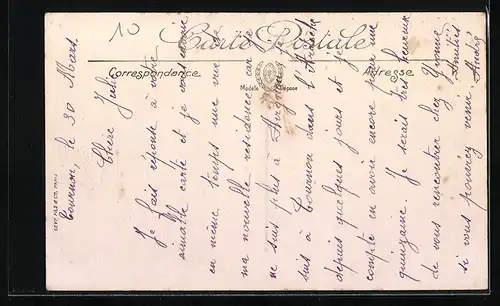 10
Carte Postale
Correspondance
Adresse
Modèle Déposé
LEVY FILS & CIE, PARIS
Tournon, le 30 Mars.
Chère Julia
Je fais réponse à votre
aimable carte et je vous envoie
en même temps une vue de
ma nouvelle residence car je
ne suis plus à
suis à Tournon dans l'Ardèche
depuis quelques jours et je
compte en avoir encore pour une
quinzaine. Je serais très heureux
de vous rencontrer chez Yvonne
si vous pouviez venir. Amitiés
André